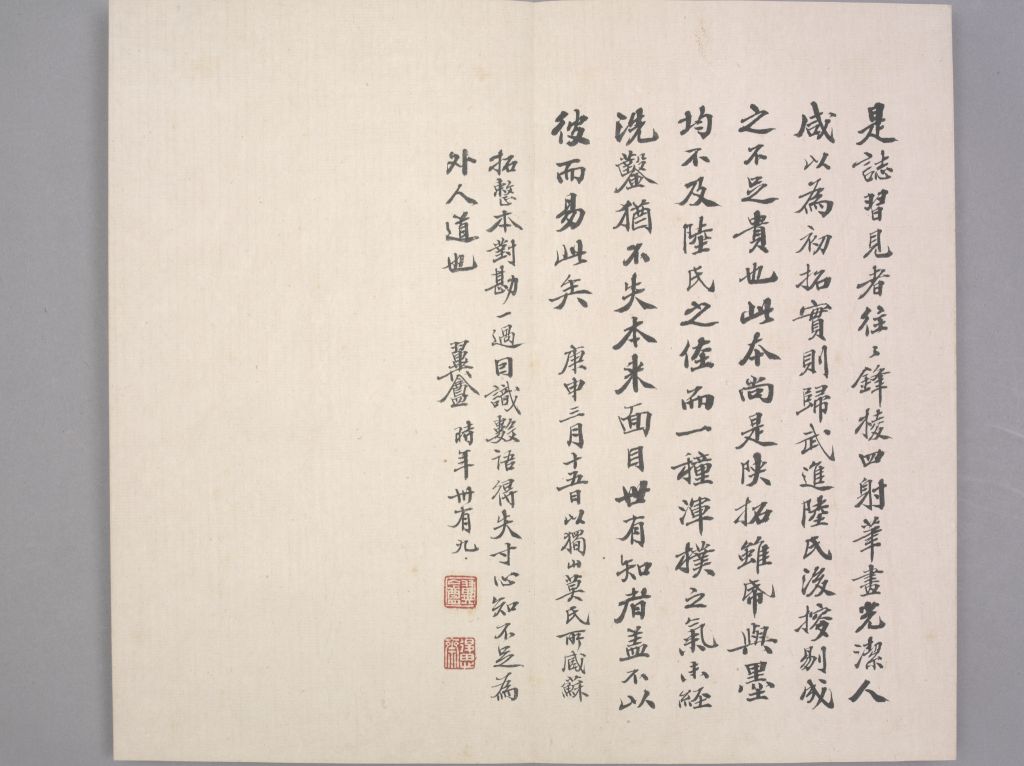 是誌習見者往〻鋒棱四射筆畫光潔人
咸以為初拓實則歸武進陸氏後剔成
之不足貴也此本尚是陕拓雖帋與墨
均不及陸氏之佳而一種渾樸之氣未經
洗鑿猶不失本来面目世有知者盖不以
彼而易此矣 庚申三月十五日以獨山莫氏所臧蘇
拓整本對勘一過因識數语得失寸心知不足為
外人道也 翼盦時年卅有九